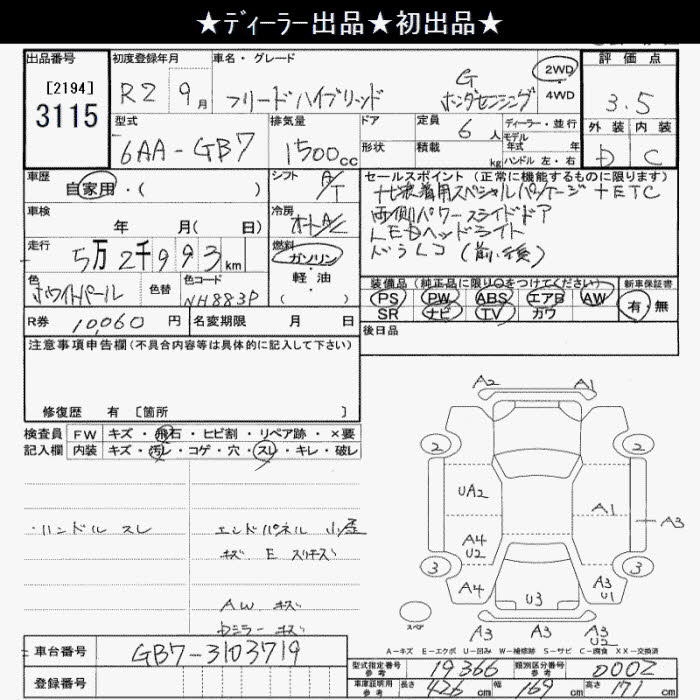 ★ディーラー出品★初出品★
出品番号 初度登録年月 車名・グレード 評価点
[2194]
3115
R2 9月 フリードハイブリッド G ホンダセンシング 2WD 4WD 3.5
型式 排気量 ドア 定員 6人 ディーラー・並行 外装 内装
6AA-GB7 1500cc 形状 積載 kg モデル年式 年式 ハンドル 左・右 D C
車歴 自家用・( ) シフト A/T セールスポイント(正常に機能するものに限ります)
ナビ装着用スペシャルパッケージ+ETC
車検 年 月(日) 冷房 オートA/C 両側パワースライドドア
LEDヘッドライト
走行 5万2千993km 燃料 ガソリン・軽油・( ) ドラレコ(前後)
色 ホワイトパール 色替 色コード NH883P 装備品(純正品に限り○をつけてください) 新車保証書
PS PW ABS エアB AW 有・無
SR ナビ TV カワ
R券 10,060円 名変期限 月 日 後日品
注意事項申告欄(不具合内容等は具体的に記入して下さい)
修復歴 有〔箇所 〕
検査員 FW キズ・飛石・ヒビ割・リペア跡・×要
記入欄 内装 キズ・汚レ・コゲ・穴・スレ・キレ・破レ
・ハンドル スレ エンドパネル 小歪
キズ E スリキズ
AW キズ
Dミラー キズ
A2 A1
2 2
UA2 A1 A3
A4 U2
3 3
A4 U3 A3 U1
スペア A3 A3 A3 U2
A-キズ E-エクボ U-凹み W-補修跡 S-サビ C-腐食 XX-交換済
車台番号 GB7-3103719
登録番号
型式指定番号 参考 19366 類別区分番号 参考 0002
車庫証明用 参考 長さ 426cm 幅 169cm 高さ 171cm